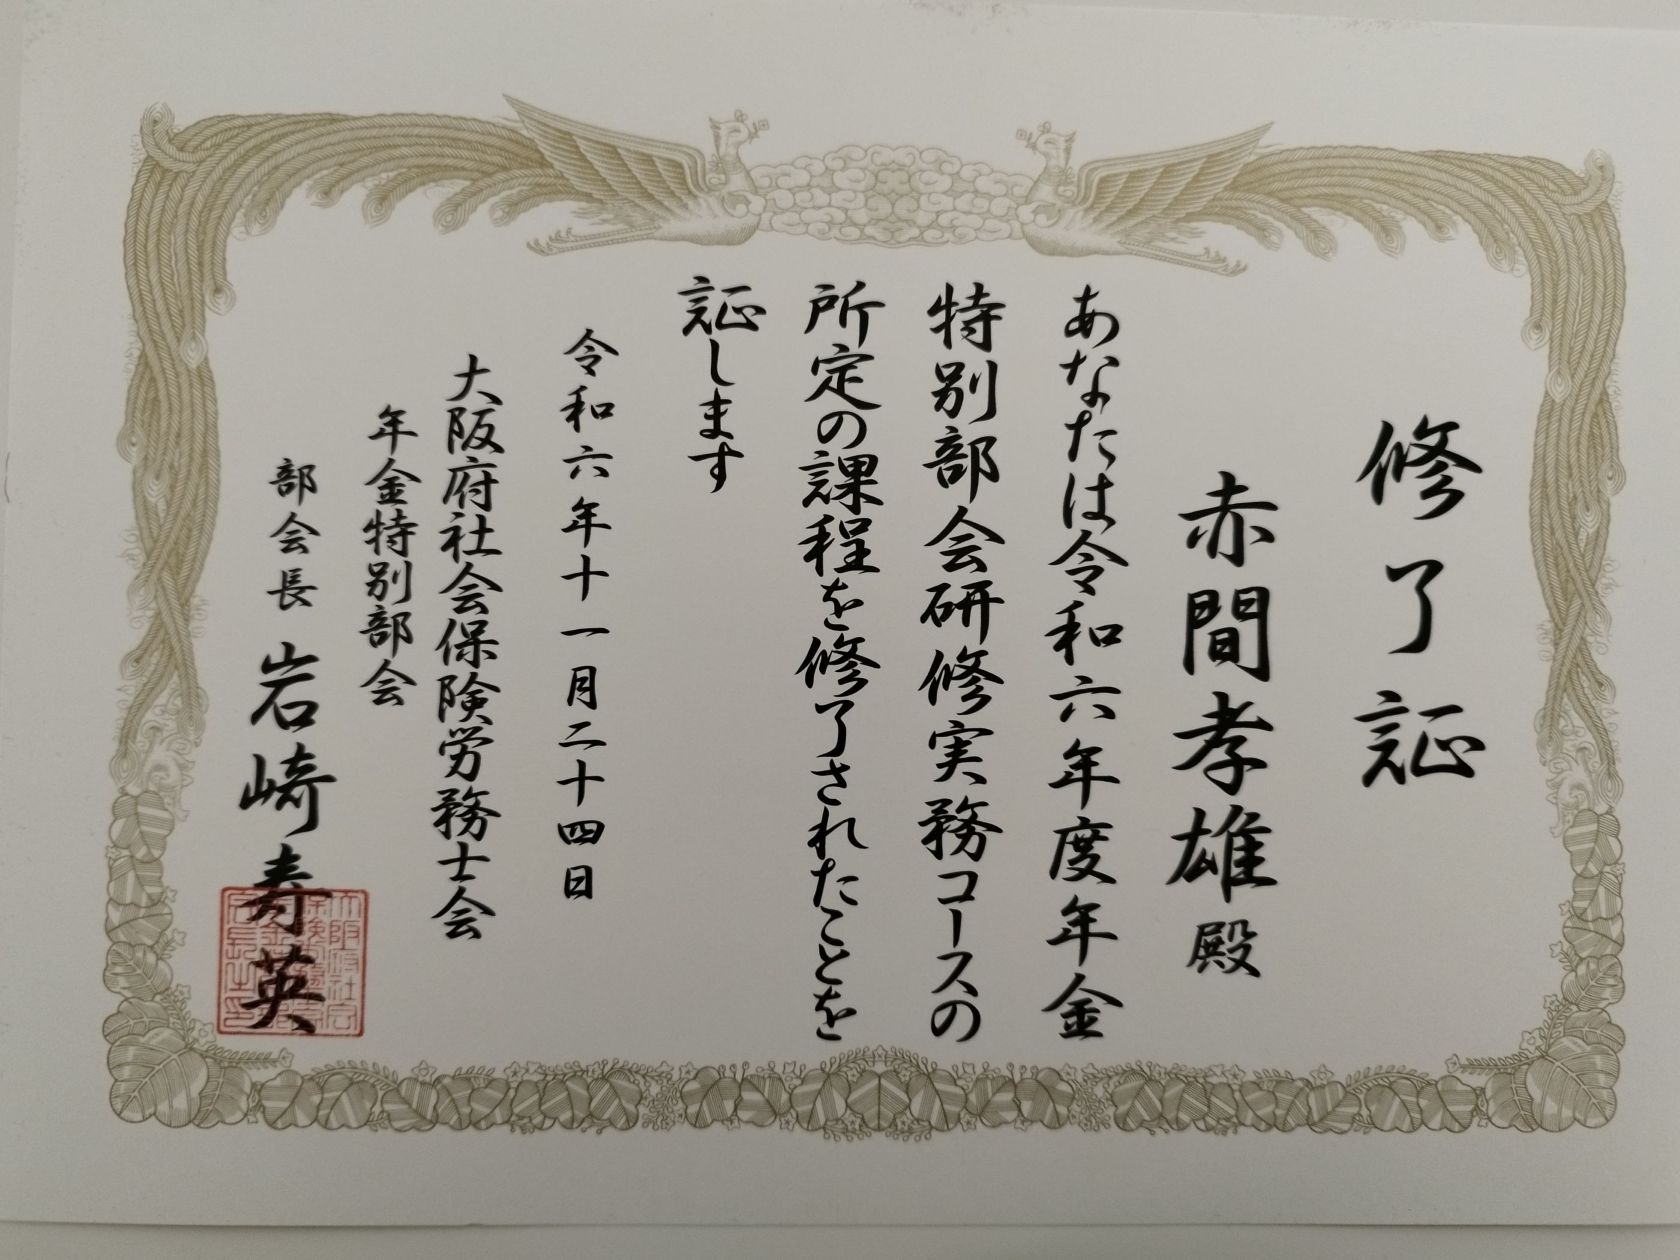 修了証
赤間孝雄殿
あなたは令和六年度年金
特別部会研修実務コースの
所定の課程を修了されたことを
証します
令和六年十一月二十四日
大阪府社会保険労務士会
年金特別部会
部会長 岩崎寿英